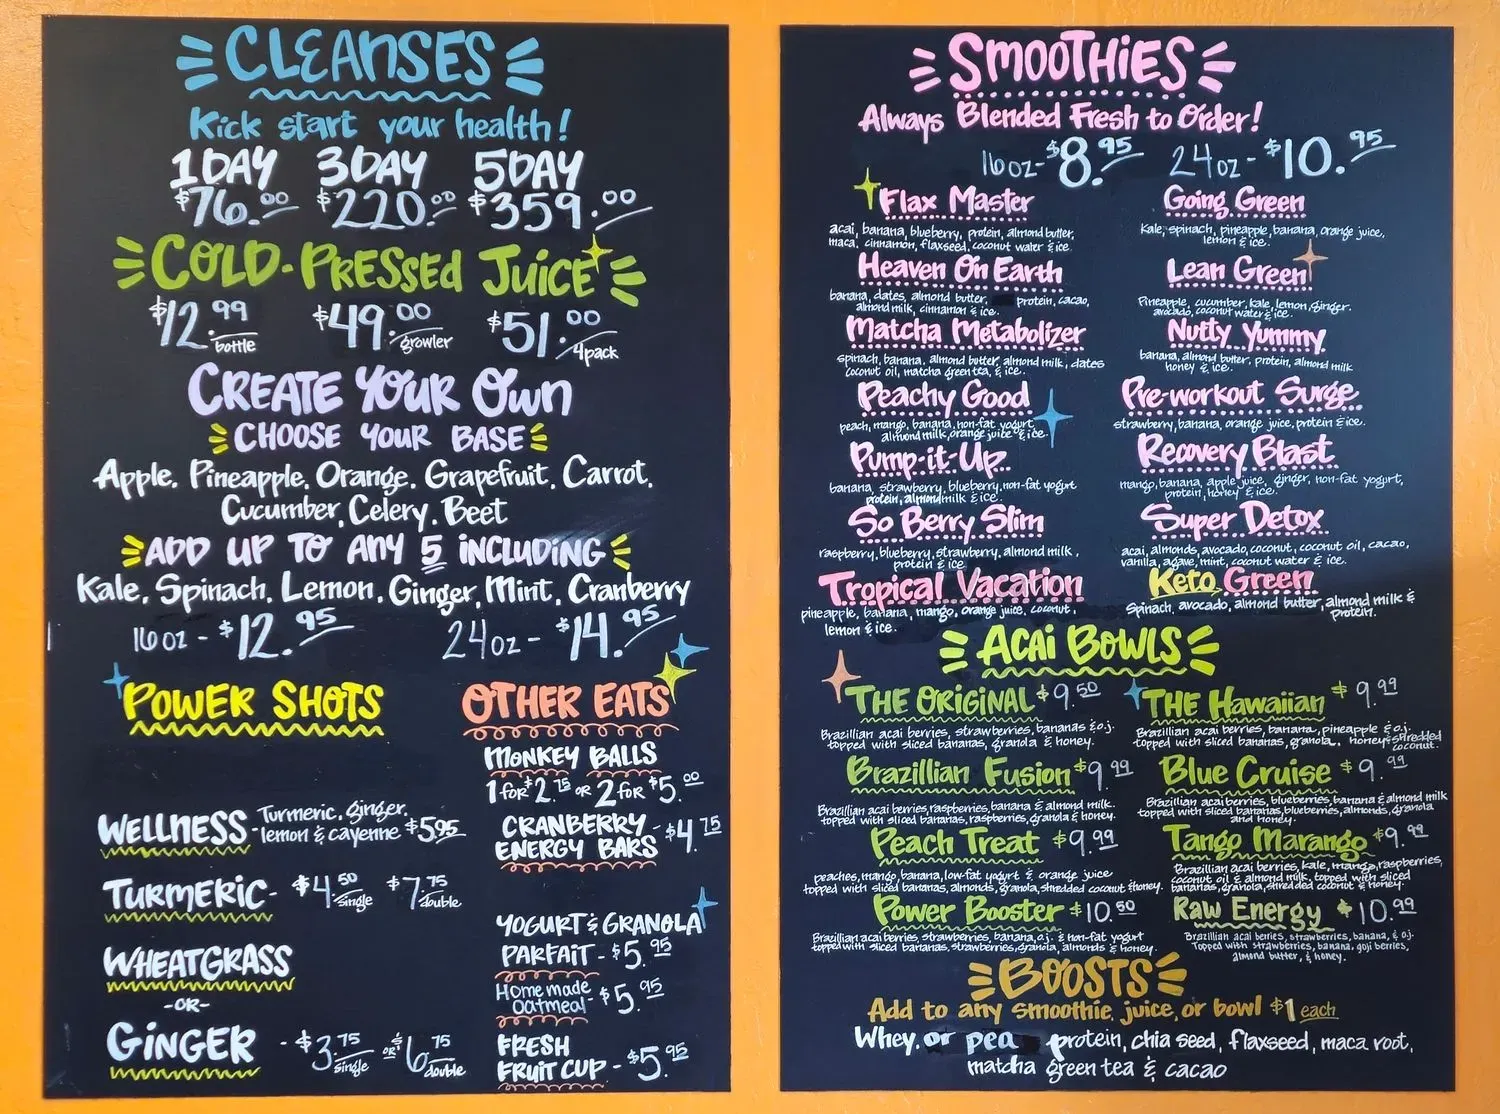 CLEANSES
Kick start your health!
1 DAY 3 DAY 5 DAY
$76.00 $220.00 $359.00
COLD-PRESSED JUICE
$12.99 bottle $49.00 growler $51.00 4pack
CREATE YOUR OWN
CHOOSE YOUR BASE
Apple, Pineapple, Orange, Grapefruit, Carrot,
Cucumber, Celery, Beet
ADD UP TO ANY 5 INCLUDING
Kale, Spinach, Lemon, Ginger, Mint, Cranberry
16oz - $12.95 24oz - $14.95
POWER SHOTS
WELLNESS - Turmeric, ginger,
lemon & cayenne $5.95
TURMERIC - $4.50 single $7.75 double
WHEATGRASS
-OR-
GINGER - $3.75 single OR $6.75 double
OTHER EATS
MONKEY BALLS
1 for $2.75 OR 2 FOR $5.00
CRANBERRY
ENERGY BARS - $4.75
YOGURT & GRANOLA
PARFAIT - $5.95
Homemade
Oatmeal - $5.95
FRESH
FRUIT CUP - $5.95
SMOOTHIES
Always Blended Fresh to Order!
16oz - $8.95 24oz - $10.95
Flax Master
acai, banana, blueberry, protein, almond butter,
maca, cinnamon, flaxseed, coconut water & ice
Heaven On Earth
banana, dates, almond butter, protein, cacao,
almond milk, cinnamon & ice
Matcha Metabolizer
spinach, banana, almond butter, almond milk, dates
coconut oil, matcha green tea, & ice
Peachy Good
peach, mango, banana, non-fat yogurt,
almond milk, orange juice & ice
Pump-it-Up
banana, strawberry, blueberry, non-fat yogurt
protein, almond milk & ice
So Berry Slim
raspberry, blueberry, strawberry, almond milk,
protein & ice
Tropical Vacation
pineapple, banana, mango, orange juice, coconut,
lemon & ice
Going Green
Kale, spinach, pineapple, banana, orange juice,
lemon & ice
Lean Green
Pineapple, cucumber, kale, lemon, ginger,
avocado, coconut water & ice
Nutty Yummy
banana, almond butter, protein, almond milk
honey & ice
Pre-workout Surge
strawberry, banana, orange juice, protein & ice
Recovery Blast
mango, banana, apple juice, ginger, non-fat yogurt,
protein, honey & ice
Super Detox
acai, almonds, avocado, coconut, coconut oil, cacao,
vanilla, agave, mint, coconut water & ice
Keto Green
Spinach, avocado, almond butter, almond milk &
protein
ACAI BOWLS
THE ORIGINAL $9.50
Brazillian acai berries, strawberries, bananas & o.j.
topped with sliced bananas, granola & honey.
THE Hawaiian $9.99
Brazillian acai berries, banana, pineapple & o.j.
topped with sliced bananas, granola, honey & shredded
coconut.
Brazillian Fusion $9.99
Brazillian acai berries, raspberries, banana & almond milk.
topped with sliced bananas, raspberries, granola & honey.
Blue Cruise $9.99
Brazillian acai berries, blueberries, banana & almond milk
topped with sliced bananas, blueberries, almonds, granola
and honey.
Peach Treat $9.99
peaches, mango, banana, low-fat yogurt & orange juice
topped with sliced bananas, almonds, granola, shredded coconut & honey.
Tango Marango $9.99
Brazillian acai berries, kale, mango, raspberries,
coconut oil & almond milk, topped with sliced
bananas, granola, shredded coconut & honey.
Power Booster $10.50
Brazillian acai berries, strawberries, banana, o.j. & non-fat yogurt
topped with sliced bananas, strawberries, granola, almonds & honey.
Raw Energy $10.99
Brazillian acai berries, strawberries, banana, & o.j.
Topped with strawberries, banana, goji berries,
almond butter, & honey.
BOOSTS
Add to any smoothie, juice, or bowl $1 each
Whey or pea protein, chia seed, flaxseed, maca root,
matcha green tea & cacao